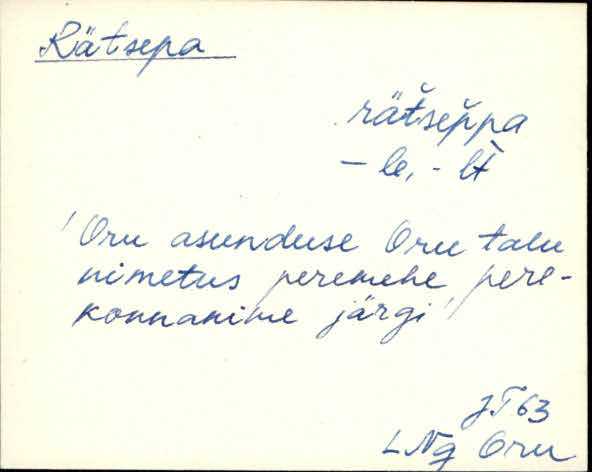 Rätsepa
rätšeppa
- le, - lt
'Oru asunduse Oru talu
nimetus peremehe pere-
konnanime järgi'
JT 63
LNg Oru